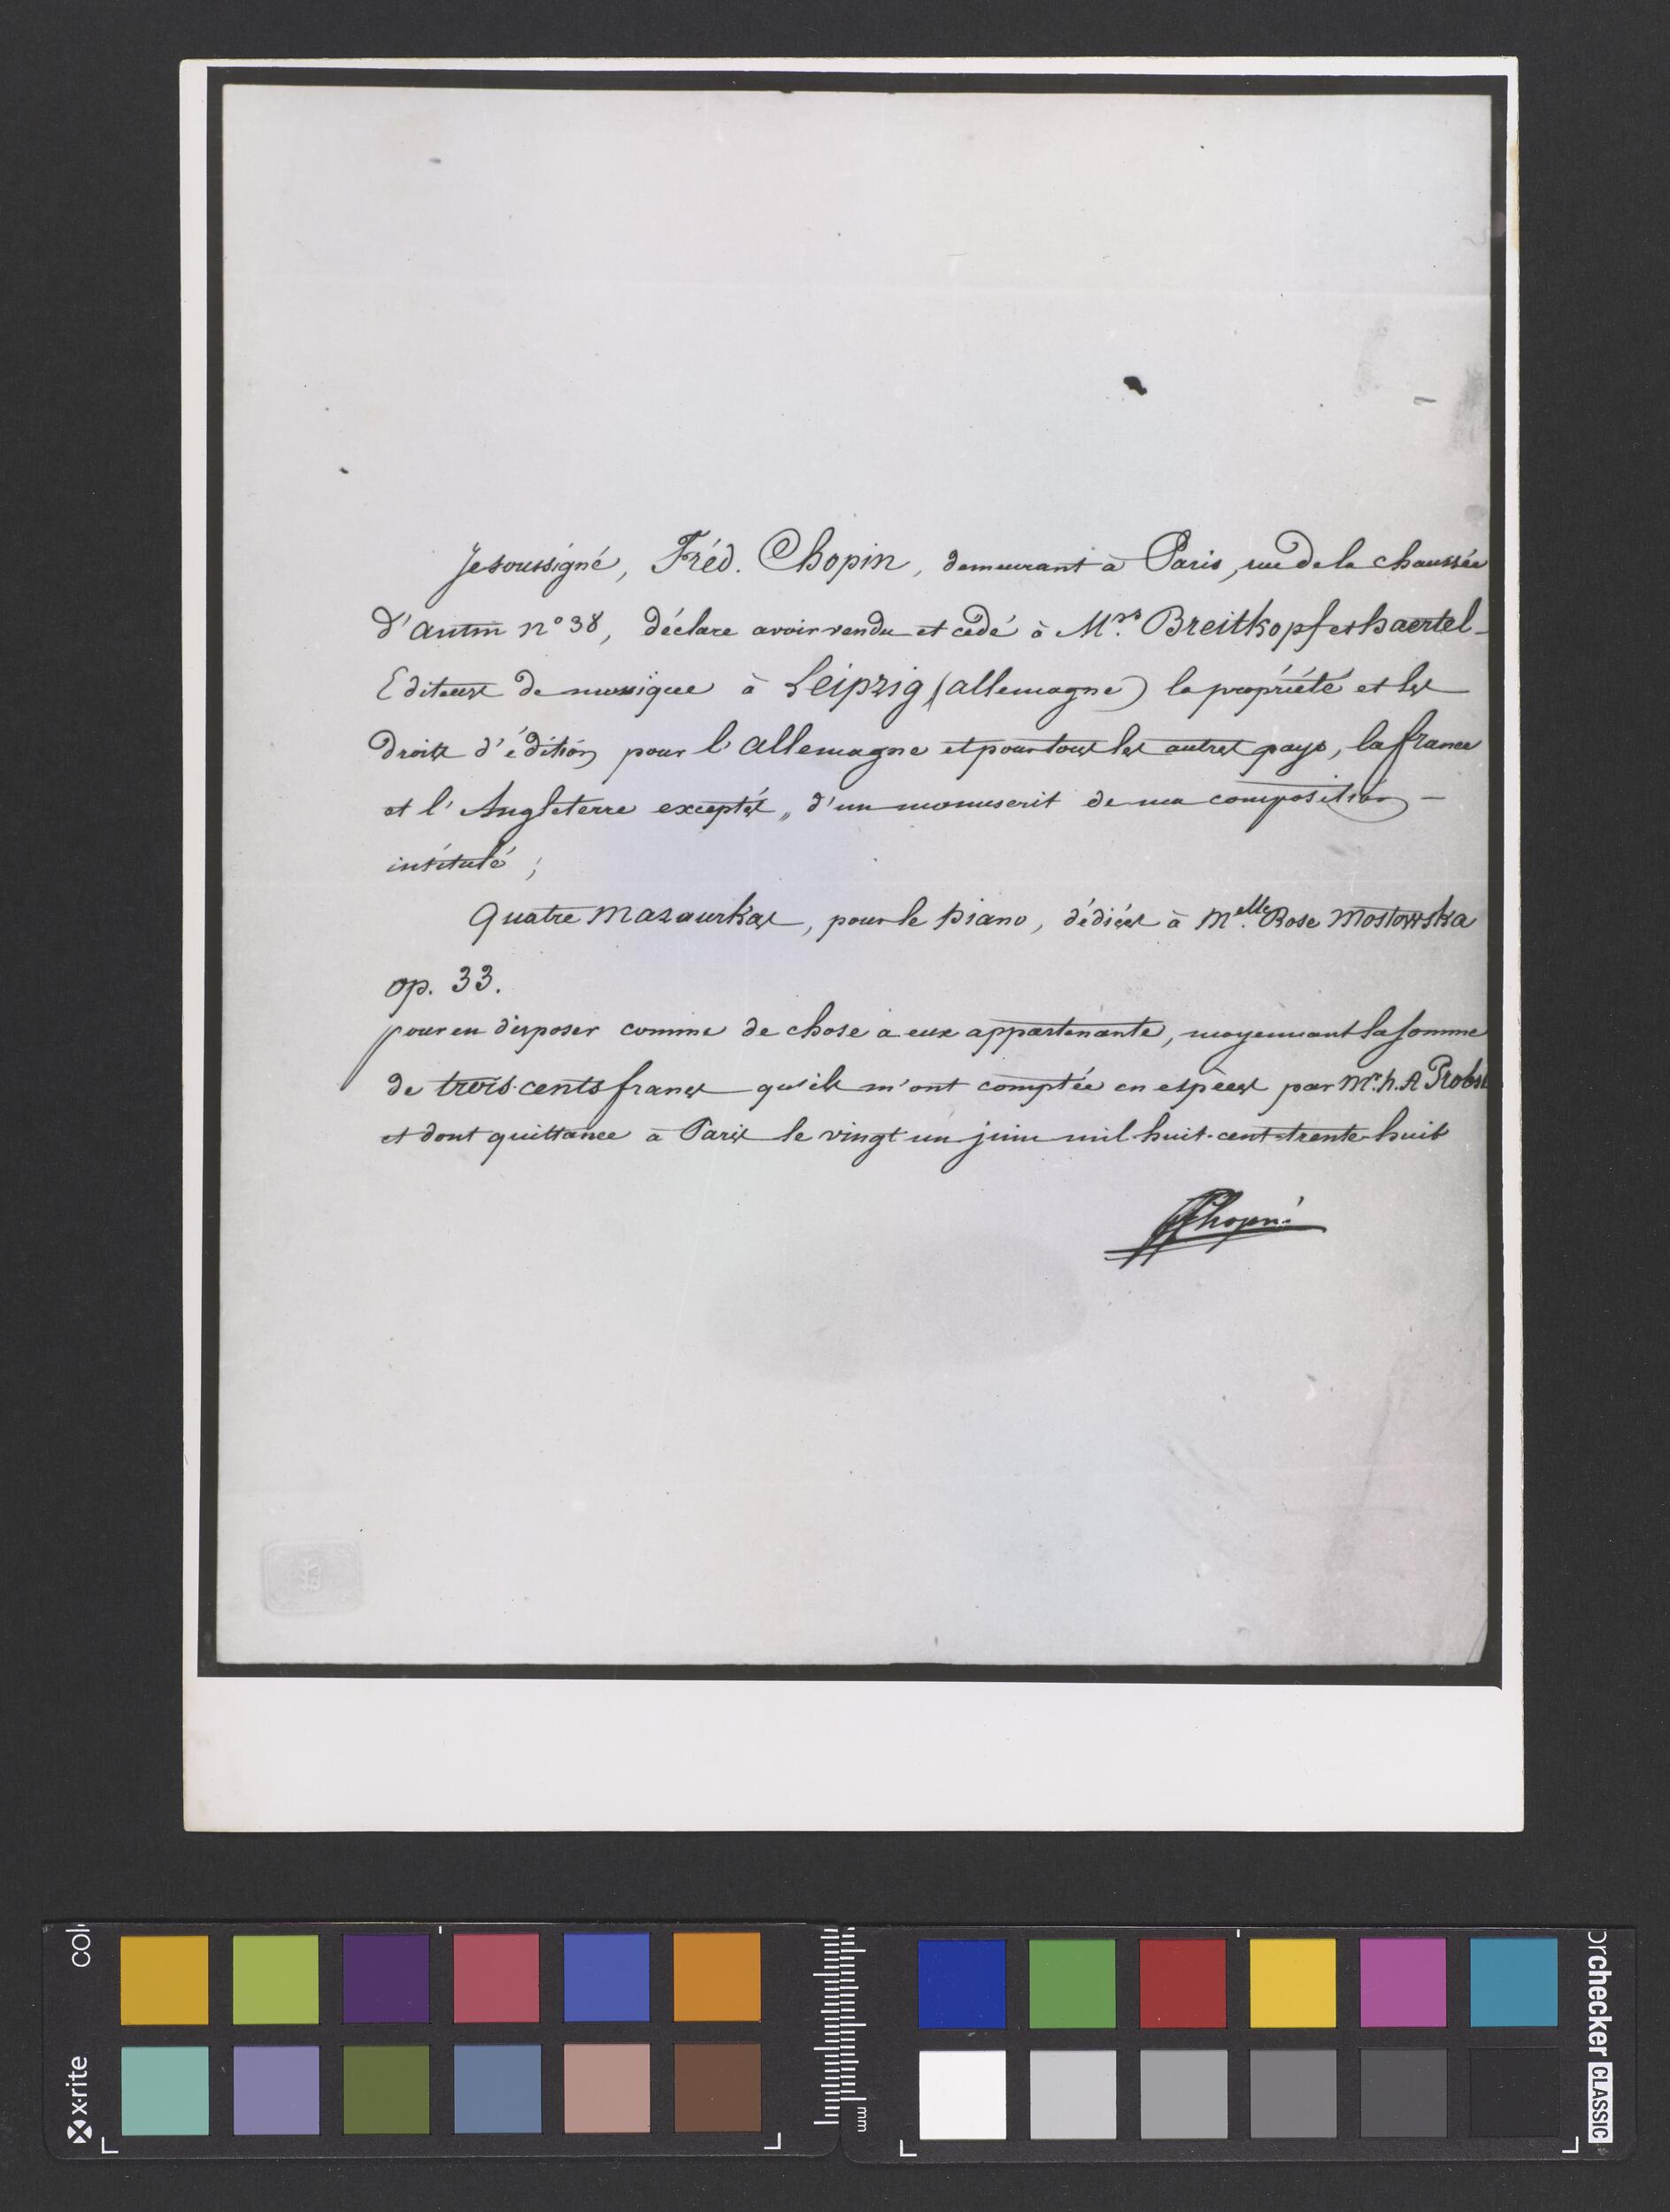 Je soussigné, Fréd. Chopin, demeurant à Paris, rue de la chaussée
d'antin n° 38, déclare avoir vendu et cédé à M.rs Breitkopf et haertel
Editeurs de musique à Leipzig (allemagne) la propriété et les
droits d'édition pour l'allemagne et pour tous les autres pays, la france
et l'Angleterre exceptés, d'un manuscrit de ma composition –
intitulé ;
Quatre Mazourkas, pour le piano, dédiées à M.elle Rose Mostowska
op. 33.
pour en disposer comme de chose à eux appartenante, moyennant la somme
de trois cents francs qu'ils m'ont comptée en espèces par Mr. h. A Probst
et dont quittance à Paris le vingt un juin mil-huit-cent-trente-huit
FChopin
x·rite
colorchecker CLASSIC
mm